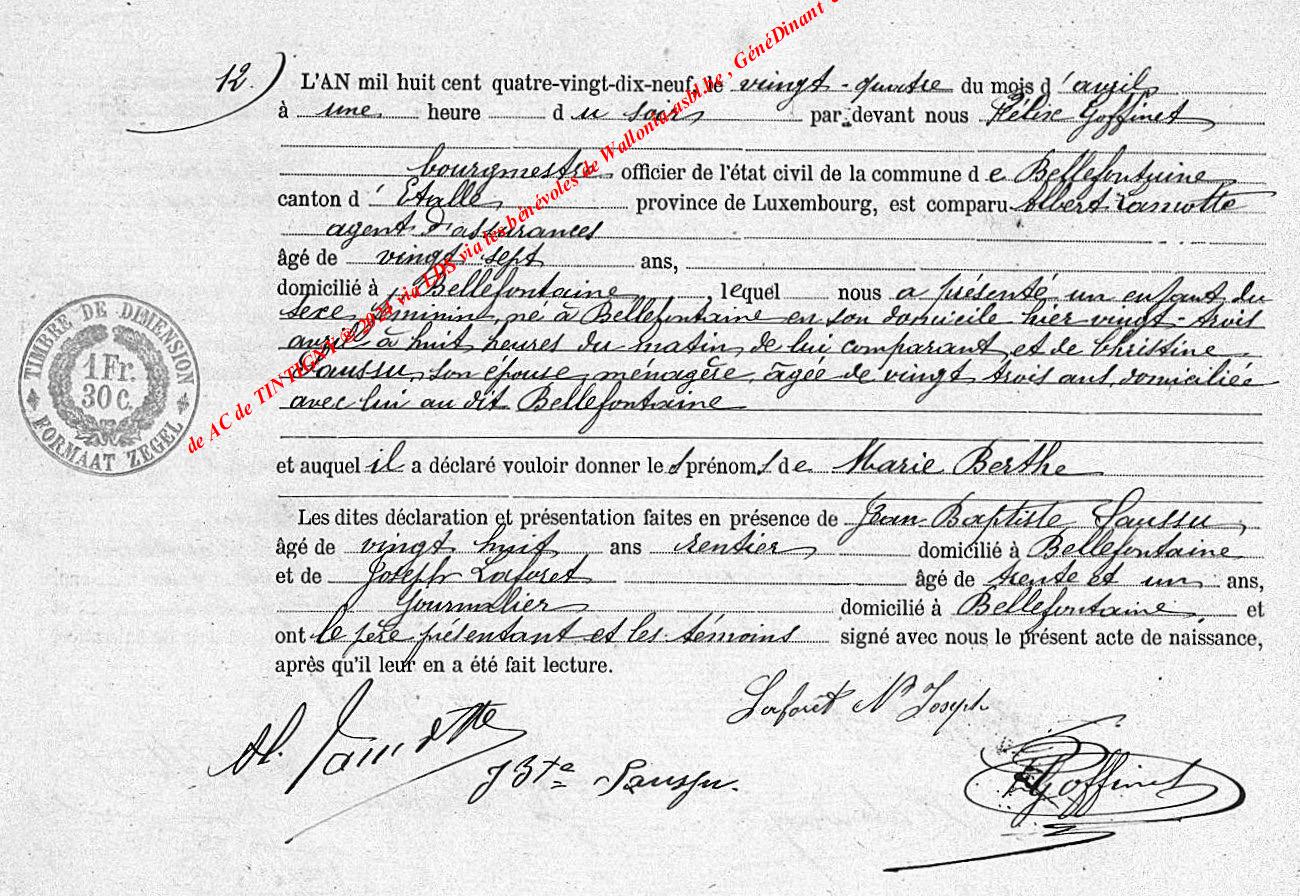 12.) L'AN mil huit cent quatre-vingt-dix-neuf, le vingt-quatre du mois d'avril
à une heure du soir par devant nous Félix Goffinet
bourgmestre officier de l'état civil de la commune de Bellefontaine
canton d'Etalle province de Luxembourg, est comparu Albert Lamotte
agent d'assurances
âgé de vingt sept ans,
domicilié à Bellefontaine, lequel nous a présenté un enfant du
sexe féminin, né à Bellefontaine en son domicile hier vingt-trois
avril à huit heures du matin, de lui comparant et de Christine
Saussu, son épouse, ménagère, âgée de vingt trois ans, domiciliée
avec lui au dit Bellefontaine
et auquel il a déclaré vouloir donner les prénoms de Marie Berthe
Les dites déclaration et présentation faites en présence de Jean-Baptiste Saussu,
âgé de vingt huit ans rentier domicilié à Bellefontaine
et de Joseph Laforet âgé de trente et un ans,
Journalier domicilié à Bellefontaine, et
ont le père présentant et les témoins signé avec nous le présent acte de naissance,
après qu'il leur en a été fait lecture.
Laforêt Nr Joseph
Al. Lamotte
J Bte Saussu.
Goffinet
TIMBRE DE DIMENSION
1 Fr.
30 C.
FORMAAT ZEGEL
de AC de TINTIGNY © 2024 via LDS via les bénévoles de Wallonia asbl.be, GénéDinant